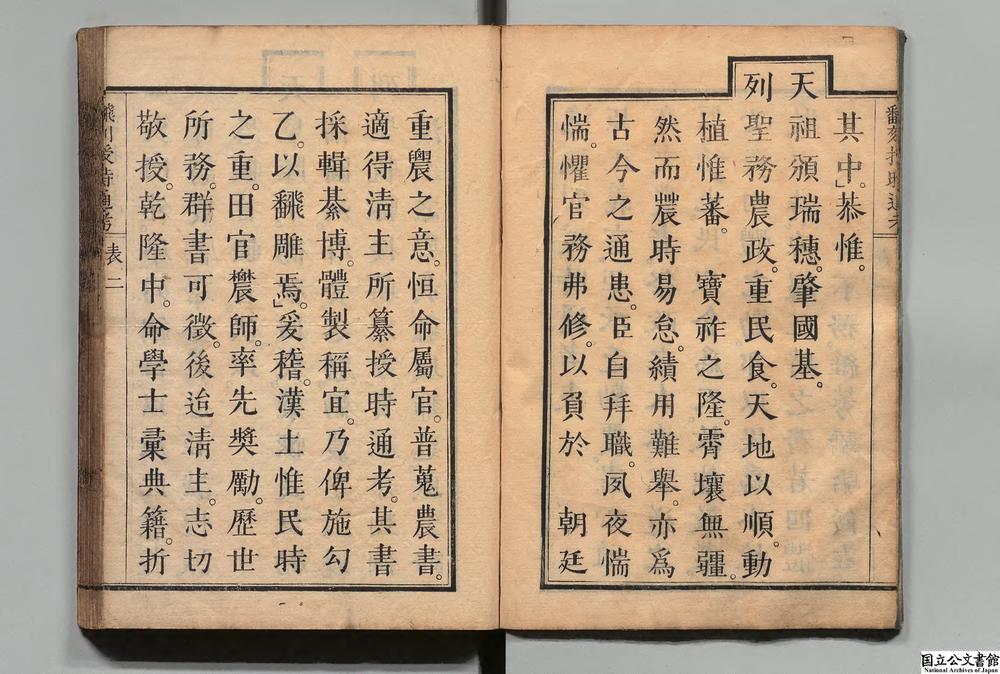 其中。恭惟。
天祖頒瑞穗。肇國基。
列聖務農政。重民食。天地以順。動
植惟蕃。寶祚之隆。霄壤無疆。
然而農時易怠。績用難舉。亦爲
古今之通患。臣自拜職。夙夜惴
惴。懼官務弗修。以負於　朝廷
重農之意。恒命屬官。普蒐農書。
適得淸主所纂授時通考。其書
採輯綦博。體製稱宜。乃俾施勾
乙。以飜雕焉。爰稽漢土惟民時
之重。田官農師。率先奬勵。歷世
所務。群書可徵。後迨淸主。志切
敬授。乾隆中。命學士彙典籍。折
飜刻授時通考
表　二
国立公文書館
National Archives of Japan